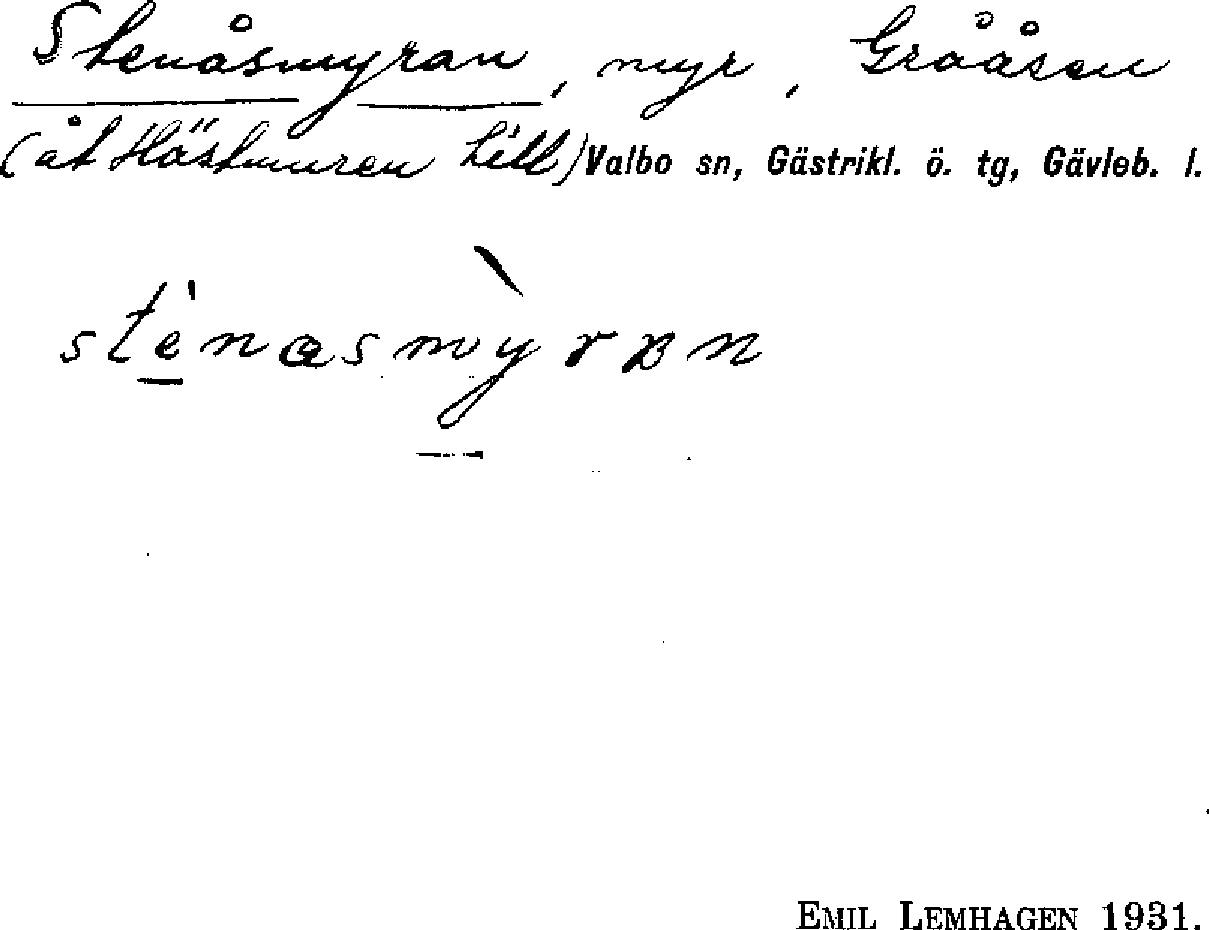 Stenåsmyran, myr, Grååsen
(åt Hästmuren till) Valbo sn, Gästrikl. ö. tg, Gävleb. l.
stènasmỳrɐn
EMIL LEMHAGEN 1931.